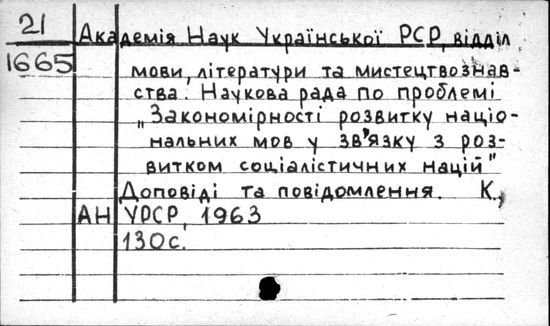 21
1665
Академія Наук Української РСР, відділ
мови, літератури та мистецтвознав-
ства. Наукова рада по проблемі
„Закономірності розвитку націо-
нальних мов у зв'язку з роз-
витком соціалістичних націй"
Доповіді та повідомлення. К.,
АН УРСР, 1963
130с.